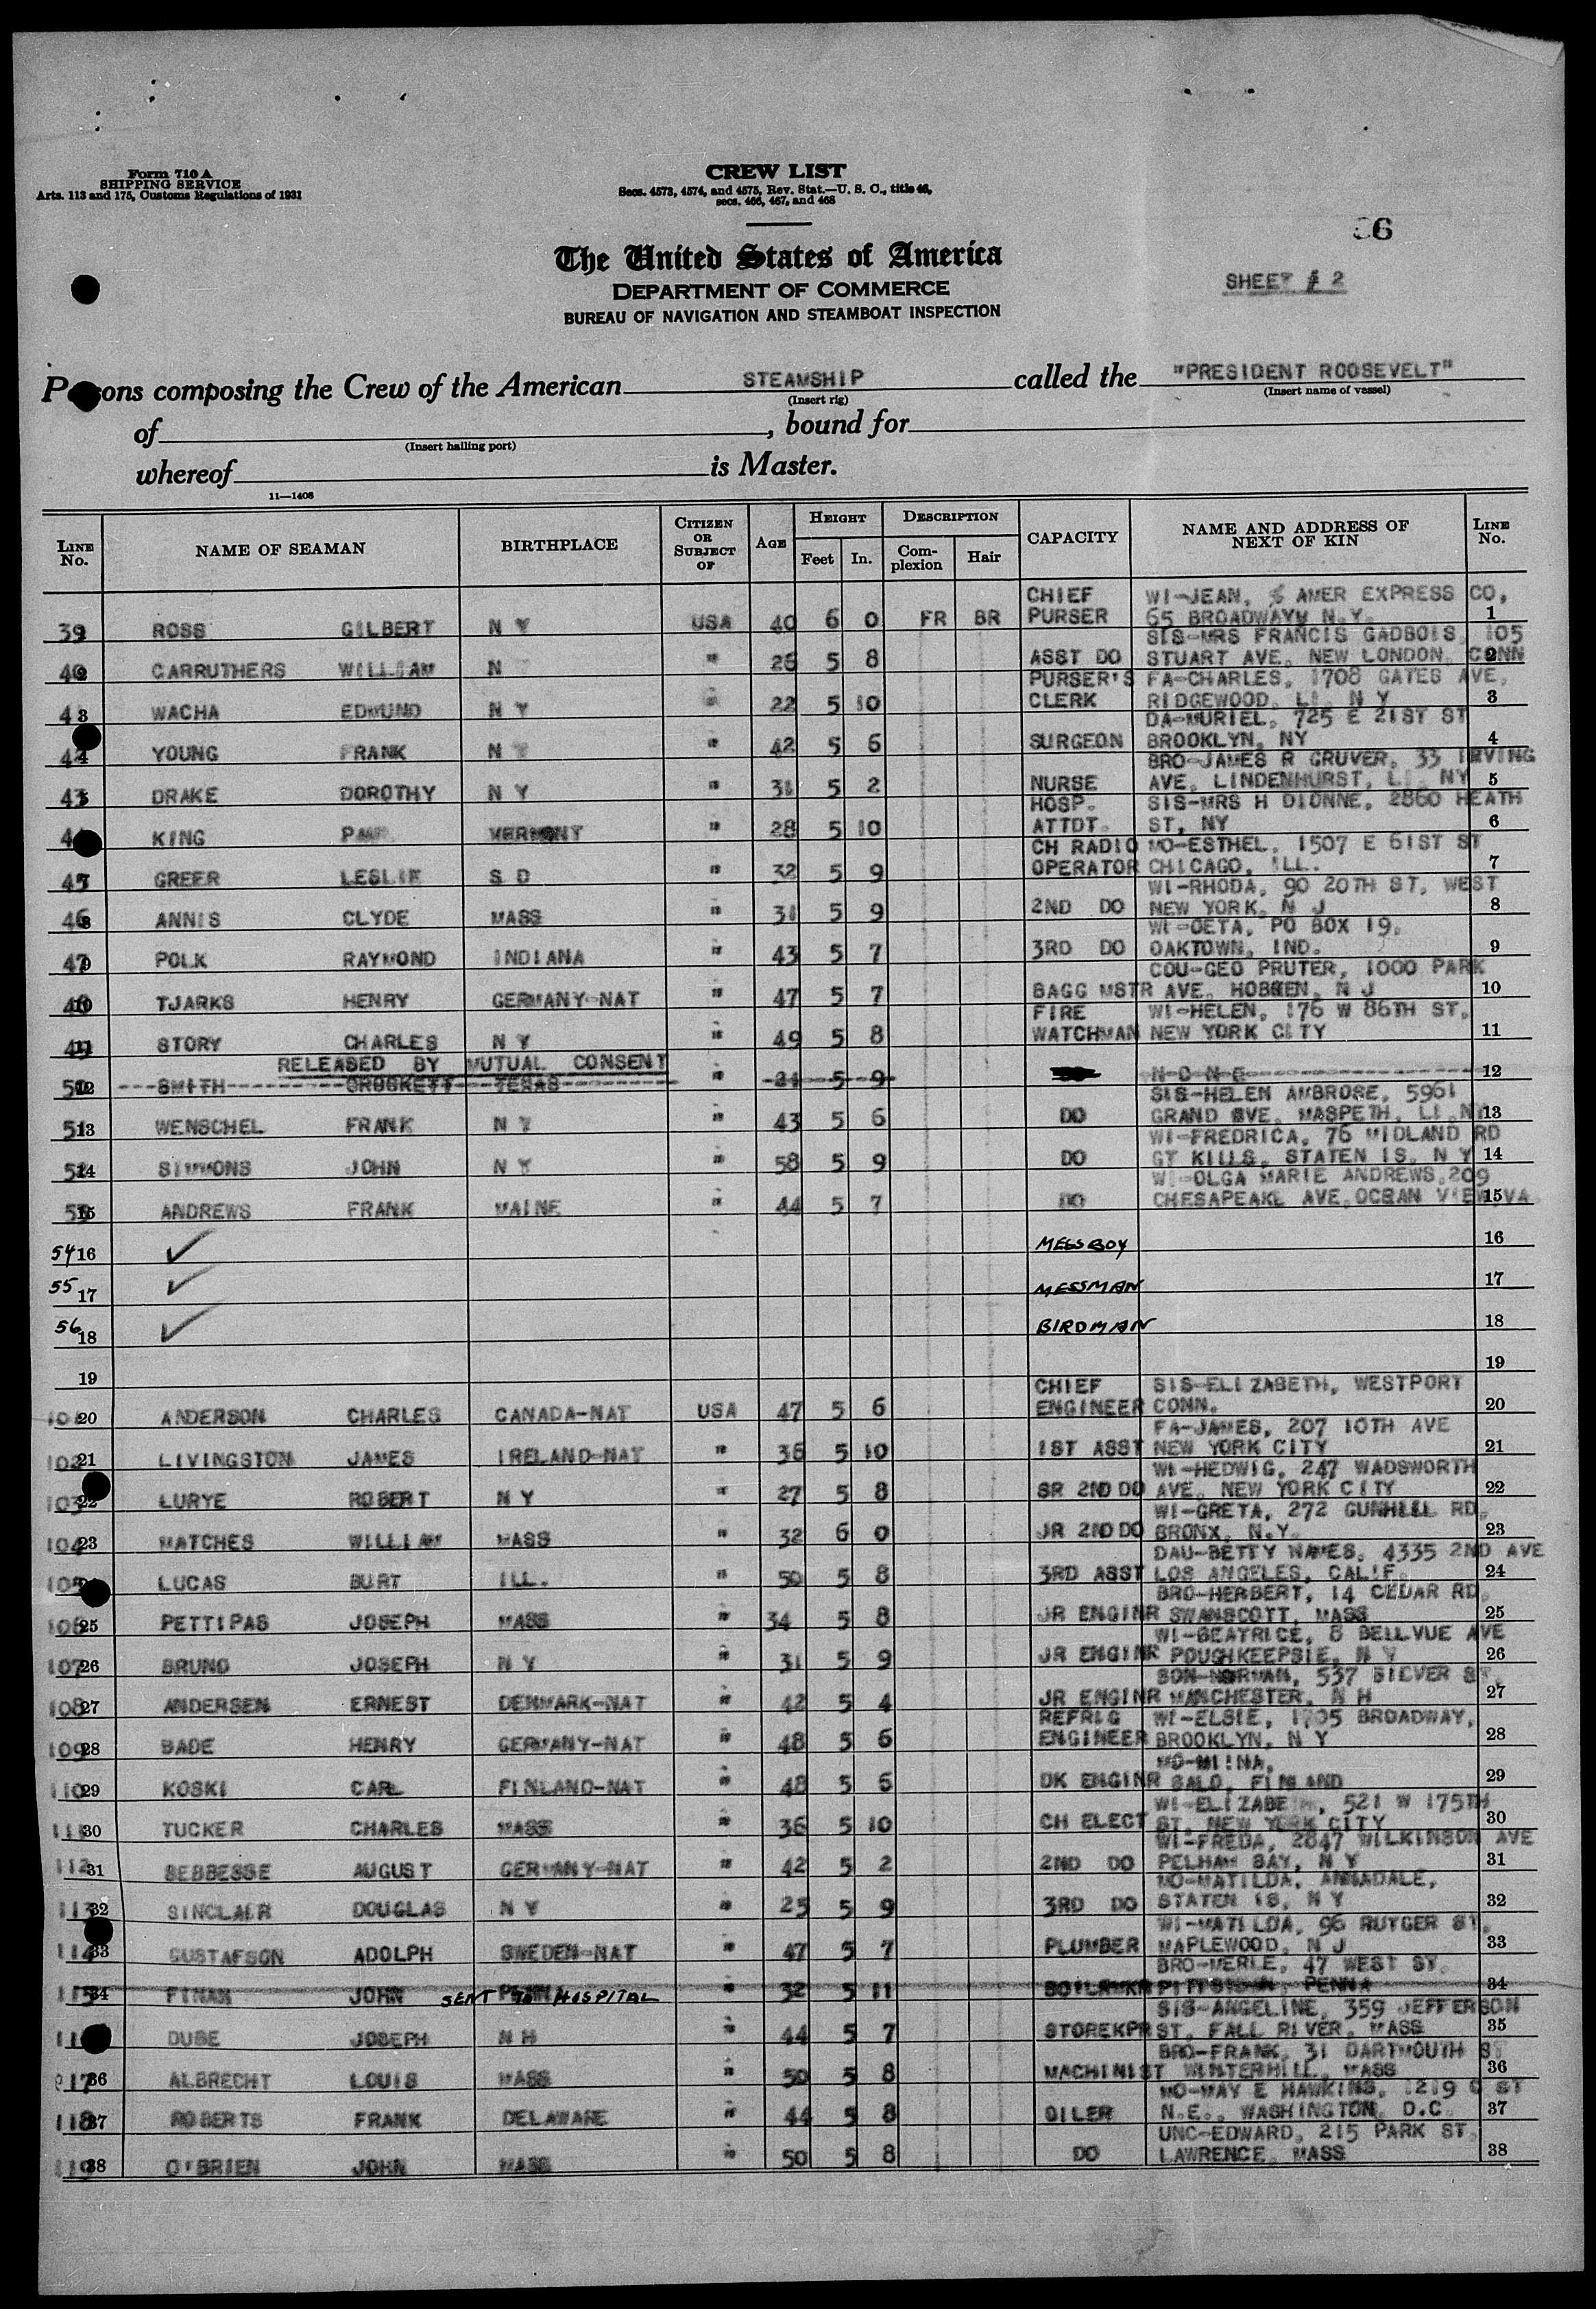 Form 710 A
SHIPPING SERVICE
Arts. 113 and 175, Customs Regulations of 1931
CREW LIST
Secs. 4573, 4574, and 4575, Rev. Stat.—U. S. C., title 46,
secs. 466, 467, and 468
36
The United States of America
DEPARTMENT OF COMMERCE
BUREAU OF NAVIGATION AND STEAMBOAT INSPECTION
SHEET # 2
Persons composing the Crew of the American STEAMSHIP called the "PRESIDENT ROOSEVELT"
(Insert rig) (Insert name of vessel)
of , bound for
(Insert hailing port)
whereof is Master.
11—1408
LINE No. NAME OF SEAMAN BIRTHPLACE CITIZEN OR SUBJECT OF AGE HEIGHT Feet In. DESCRIPTION Complexion Hair CAPACITY NAME AND ADDRESS OF NEXT OF KIN LINE No.
CHIEF WI-JEAN, % AMER EXPRESS CO,
39 ROSS GILBERT N Y USA 40 6 0 FR BR PURSER 65 BROADWAYM N.Y. 1
SIS-MRS FRANCIS GADBOIS, 105
40 CARRUTHERS WILLIAM N " 26 5 8 ASST DO STUART AVE, NEW LONDON, CONN 2
PURSER'S FA-CHARLES, 1708 GATES AVE,
41 3 WACHA EDMUND N Y " 22 5 10 CLERK RIDGEWOOD, LI, N Y 3
DA-MURIEL, 725 E 21ST ST
42 4 YOUNG FRANK N Y " 42 5 6 SURGEON BROOKLYN, NY 4
BRO-JAMES R GRUVER, 33 IRVING
43 DRAKE DOROTHY N Y " 31 5 2 NURSE AVE, LINDENHURST, LI, NY 5
HOSP. SIS-MRS H DIONNE, 2860 HEATH
KING PAUL VERMONT " 28 5 10 ATTDT. ST, NY 6
CH RADIO MO-ESTHEL, 1507 E 61ST ST
45 GREER LESLIE S D " 32 5 9 OPERATOR CHICAGO, ILL. 7
WI-RHODA, 90 20TH ST, WEST
46 8 ANNIS CLYDE MASS " 31 5 9 2ND DO NEW YORK, N J 8
WI-OETA, PO BOX 19,
47 9 POLK RAYMOND INDIANA " 43 5 7 3RD DO OAKTOWN, IND. 9
COU-GEO PRUTER, 1000 PARK
48 10 TJARKS HENRY GERMANY-NAT " 47 5 7 BAGG MSTR AVE, HOBKEN, N J 10
FIRE WI-HELEN, 176 W 86TH ST,
49 11 STORY CHARLES N Y " 49 5 8 WATCHMAN NEW YORK CITY 11
RELEASED BY MUTUAL CONSENT
50 12 SMITH CROCKETT TEXAS " 24 5 9 N O N E 12
SIS-HELEN AMBROSE, 5961
51 13 WENSCHEL FRANK N Y " 43 5 6 DO GRAND AVE, MASPETH, LI, NY 13
WI-FREDRICA, 76 MIDLAND RD
52 14 SIMMONS JOHN N Y " 58 5 9 DO GT KILLS, STATEN IS, N Y 14
WI-OLGA MARIE ANDREWS, 209
53 15 ANDREWS FRANK MAINE " 44 5 7 DO CHESAPEAKE AVE, OCEAN VIEW, VA 15
54 16 ✓ MESSBOY 16
55 17 ✓ MESSMAN 17
56 18 ✓ BIRDMAN 18
19 19
CHIEF SIS-ELIZABETH, WESTPORT
101 20 ANDERSON CHARLES CANADA-NAT USA 47 5 6 ENGINEER CONN. 20
FA-JAMES, 207 10TH AVE
102 21 LIVINGSTON JAMES IRELAND-NAT " 36 5 10 1ST ASST NEW YORK CITY 21
WI-HEDWIG, 247 WADSWORTH
103 22 LURYE ROBERT N Y " 27 5 8 SR 2ND DO AVE, NEW YORK CITY 22
WI-GRETA, 272 GUNHILL RD,
104 23 MATCHES WILLIAM MASS " 32 6 0 JR 2ND DO BRONX, N.Y. 23
DAU-BETTY HAWES, 4335 2ND AVE
105 LUCAS BURT ILL. " 50 5 8 3RD ASST LOS ANGELES, CALIF. 24
BRO-HERBERT, 14 CEDAR RD,
106 25 PETTIPAS JOSEPH MASS " 34 5 8 JR ENGINR SWANSCOTT, MASS 25
WI-BEATRICE, 8 BELLVUE AVE
107 26 BRUNO JOSEPH N Y " 31 5 9 JR ENGINR POUGHKEEPSIE, N Y 26
SON-NORMAN, 537 SILVER ST,
108 27 ANDERSEN ERNEST DENMARK-NAT " 42 5 4 JR ENGINR MANCHESTER, N H 27
REFRIG WI-ELSIE, 1705 BROADWAY,
109 28 BADE HENRY GERMANY-NAT " 48 5 6 ENGINEER BROOKLYN, N Y 28
MO-MIINA,
110 29 KOSKI CARL FINLAND-NAT " 48 5 6 DK ENGINR SALO, FINLAND 29
WI-ELIZABETH, 521 W 175TH
111 30 TUCKER CHARLES MASS " 36 5 10 CH ELECT ST, NEW YORK CITY 30
WI-FREDA, 2847 WILKINSON AVE
112 31 SEBBESSE AUGUST GERMANY-NAT " 42 5 2 2ND DO PELHAM BAY, N Y 31
MO-MATILDA, ANNADALE,
113 32 SINCLAIR DOUGLAS N Y " 25 5 9 3RD DO STATEN IS, N Y 32
WI-MATILDA, 96 RUTGER ST,
114 33 GUSTAFSON ADOLPH SWEDEN-NAT " 47 5 7 PLUMBER MAPLEWOOD, N J 33
BRO-MERLE, 47 WEST ST,
115 34 FINAN JOHN PENN " 32 5 11 BOILRMKR PITTSTOWN, PENNA 34
SENT TO HOSPITAL
SIS-ANGELINE, 359 JEFFERSON
DUBE JOSEPH N H " 44 5 7 STOREKPR ST, FALL RIVER, MASS 35
BRO-FRANK, 31 DARTMOUTH ST
117 36 ALBRECHT LOUIS MASS " 50 5 8 MACHINIST WINTERHILL, MASS 36
MO-MAY E HAWKINS, 1219 C ST
118 37 ROBERTS FRANK DELAWARE " 44 5 8 OILER N.E., WASHINGTON, D.C. 37
UNC-EDWARD, 215 PARK ST,
119 38 O'BRIEN JOHN MASS " 50 5 8 DO LAWRENCE, MASS 38